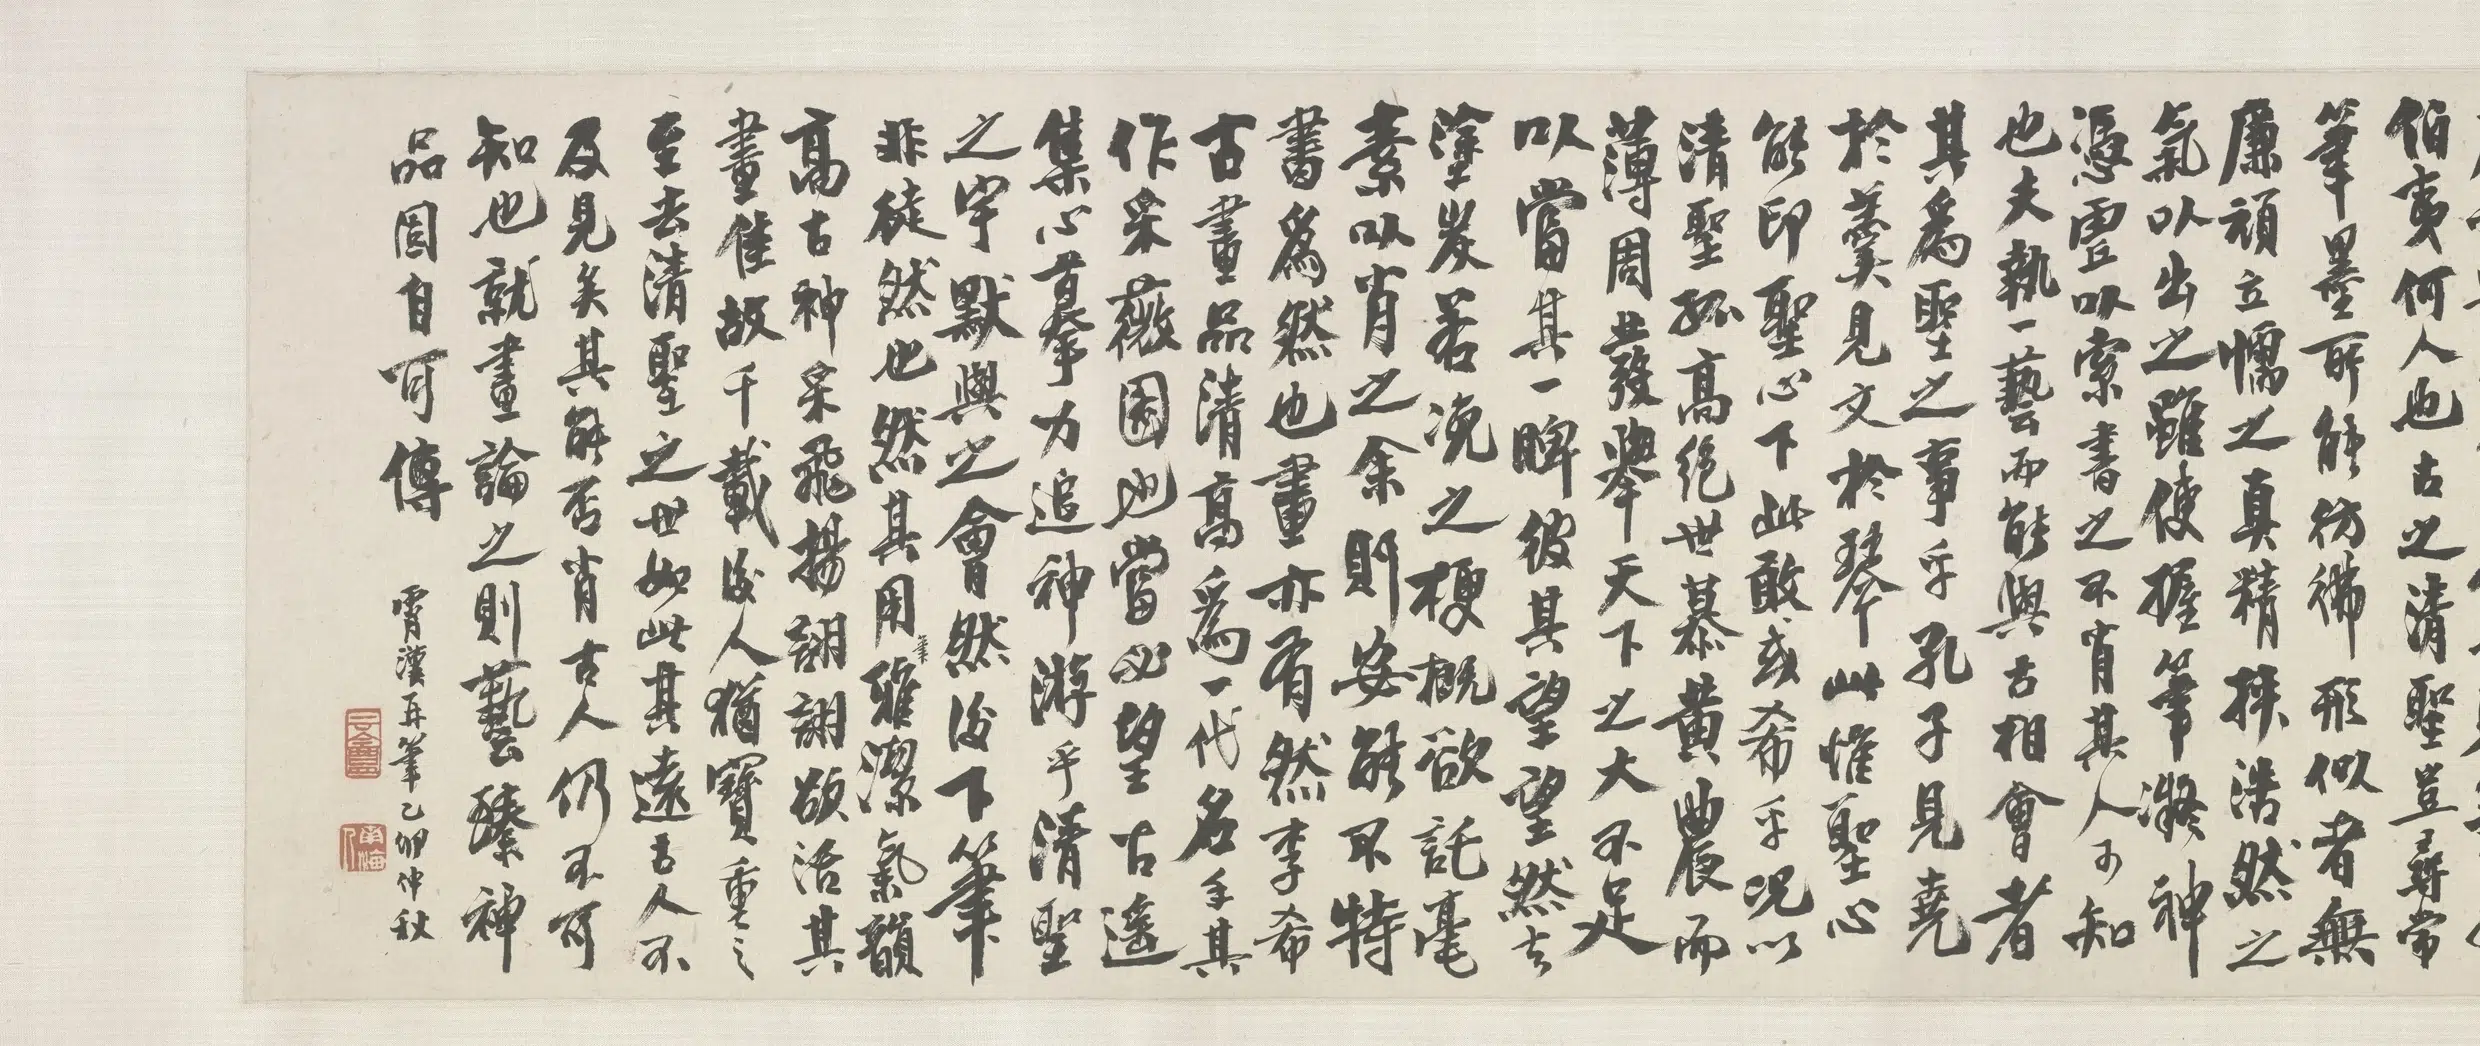 伯夷何人也古之清聖豈尋常
筆墨所能彷彿形似者無
廉頑立懦之真精揆浩然之
氣以出之雖使握筆凝神
憑虛以索書之不肖其人可知
也夫執一藝而能與古相會者
其為聖之事乎孔子見堯
於羹見文於琴此惟聖心
能印聖心下此敢或希乎況以
清聖孤高絕世慕黃農而
薄周發舉天下之大不足
以當其一睥彼其望望然去
塗炭若浼之梗概欲託毫
素以肖之余則安能不特
書為然也畫亦有然李希
古畫品清高為一代名手其
作采薇圖也當必望古遙
集心摹力追神游乎清聖
之宇默與之會然後下筆
非徒然也然其用筆雅潔氣韻
高古神采飛揚詡詡欲活其
畫佳故千載後人猶寶重之
至去清聖之世如此其遠吾人不
及見矣其能否肖古人仍不可
知也就畫論之則藝臻神
品圖自可傳
霄漢再筆乙卯仲秋